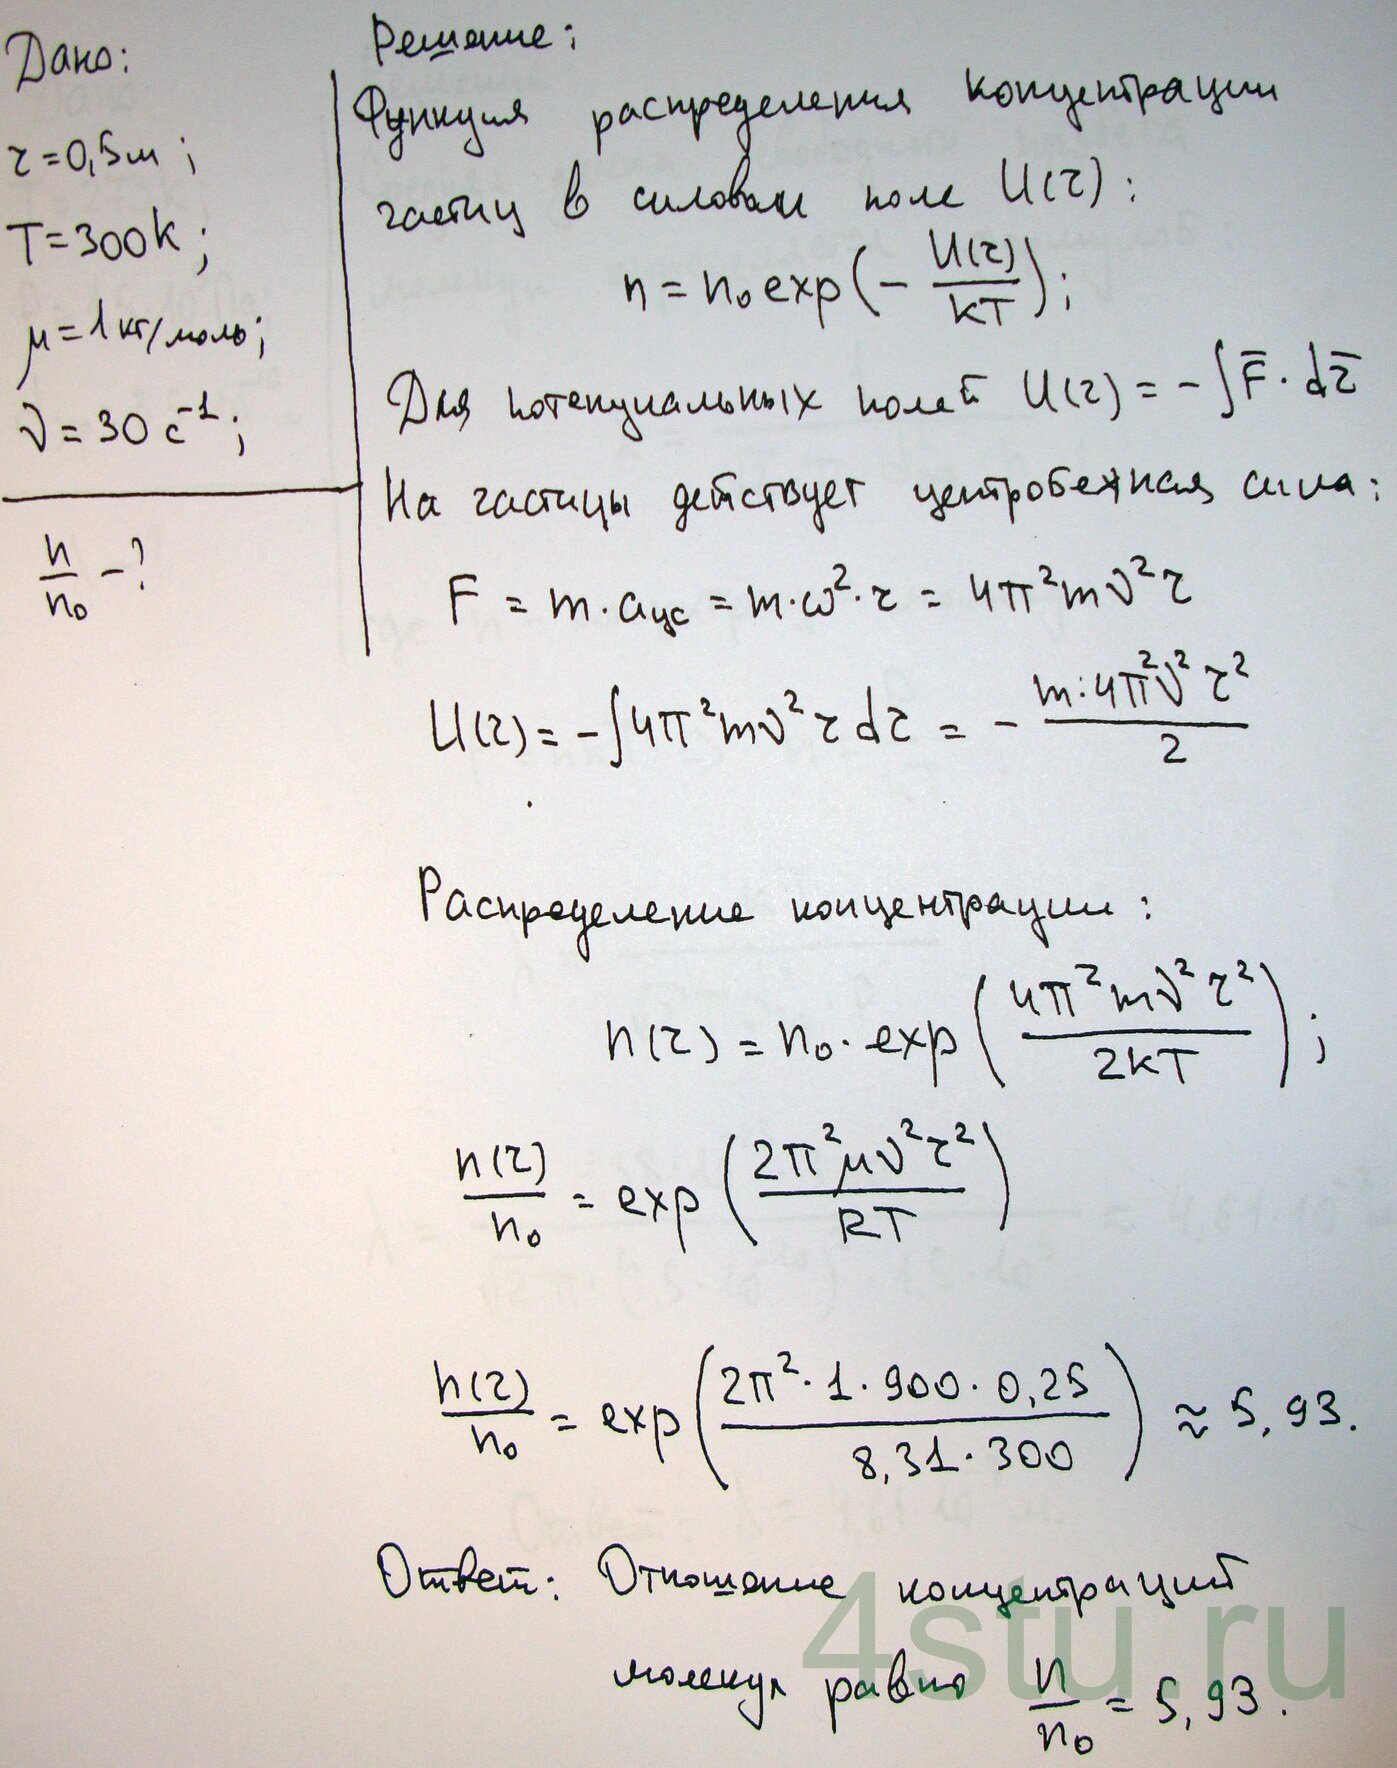 Дано:
r=0,5м;
T=300K;
μ=1кг/моль;
ν=30 с⁻¹;
n/n₀ -?
Решение:
Функция распределения концентрации
частиц в силовом поле U(r):
n = n₀ exp(- U(r)/kT);
Для потенциальных полей U(r) = -∫F̄·dr̄
На частицы действует центробежная сила:
F = m·aцс = m·ω²·r = 4π²mν²r
U(r) = -∫4π²mν²r dr = - m·4π²ν²r²/2
Распределение концентрации:
n(r) = n₀·exp(4π²mν²r²/2kT);
n(r)/n₀ = exp(2π²μν²r²/RT)
n(r)/n₀ = exp(2π²·1·900·0,25/8,31·300) ≈ 5,93.
Ответ: Отношение концентраций
молекул равно n/n₀ = 5,93.
4stu.ru